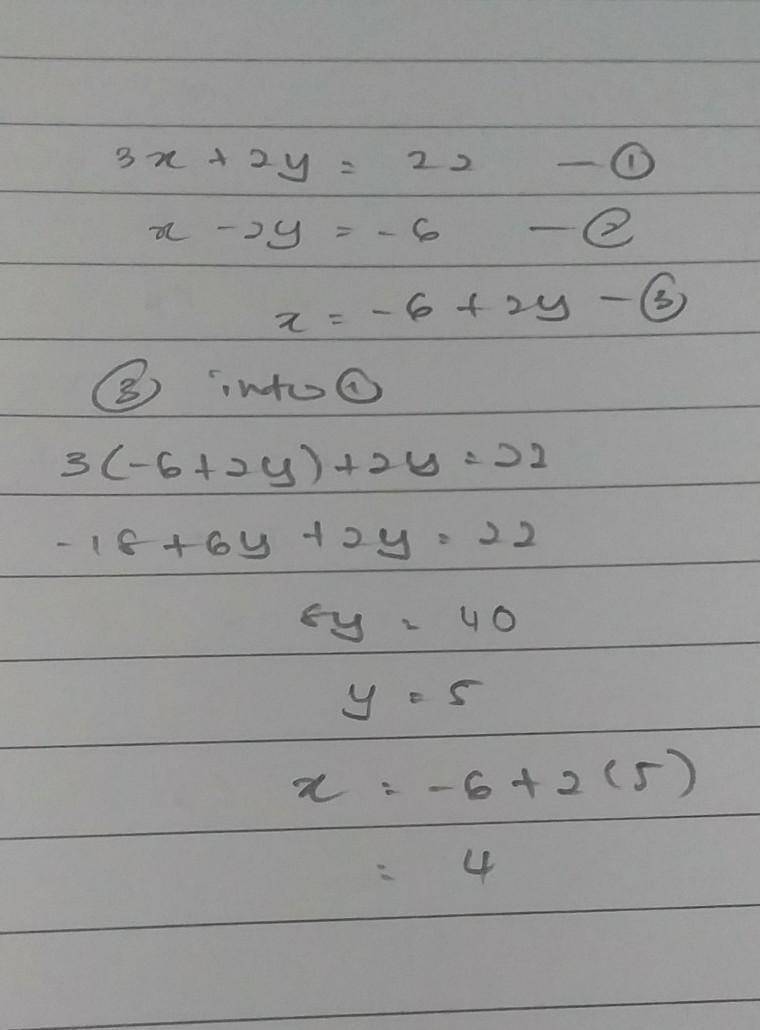 3x + 2y = 22 — ①
x - 2y = -6 — ②
x = -6 + 2y — ③
③ into ①
3(-6+2y)+2y=22
-18+6y+2y=22
8y = 40
y = 5
x = -6+2(5)
= 4